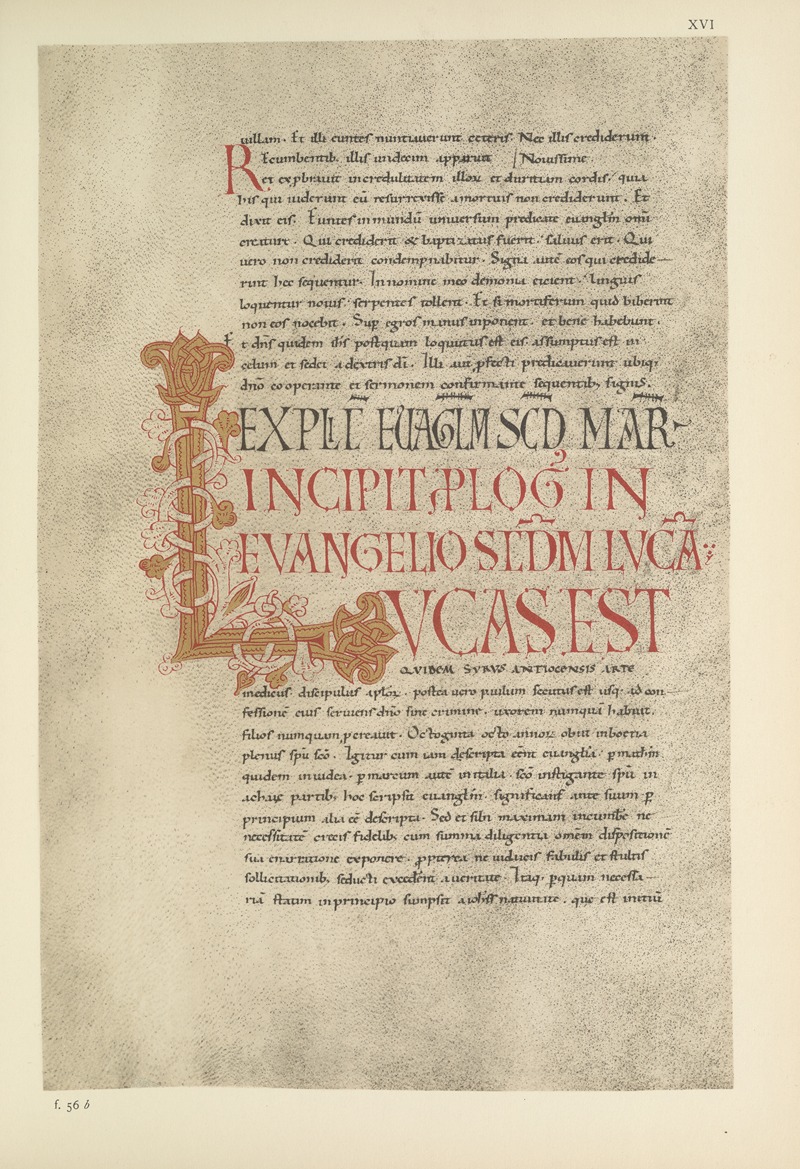 XVI
uillam. Et illi euntes nuntiauerunt ceteris. Nec illis crediderunt.
Recumbentib, illis undecim apparuit Nouissime.
et exprobrauit incredulitatem illoꝝ et duritiam cordis. quia
his qui uiderunt eū resurrexisse amortuis non crediderunt. Et
dixit eis. Euntes in mundū uniuersum predicate euanglm̄ omi
creature. Qui crediderit & baptizatus fuerit. saluus erit. Qui
uero non crediderit condempnabitur. Signa autē eos qui credide
rint hec sequentur. In nomine meo demonia eicient. linguis
loquentur nouis. serpentes tollent. Et si mortiferum quid biberint
non eos nocebit. Sup egros manus inponent. et bene habebunt.
Et dn̄s quidem ih̄s postquam loquutus est eis. assumptus est in
celum et sedet adextris dī. Illi aut pfecti predicauerunt ubiq;
dn̄o cooperante et sermonem confirmante sequentib, signis.
EXPLIC̄ EUAGLM SCD MAR
INCIPIT PLOG IN
EVANGELIO SCDM LVCA
LVCAS EST
QVIDEM SYRVS ANTIOCENSIS ARTE
medicus. discipulus aplōꝝ. postea uero paulum secutus est usq; ad con
fessionē eius seruiens dn̄o sine crimine. uxorem numquā habuit.
filios numquam pcreauit. Octoginta octo annoꝝ obiit inboetia
plenus spū scō. Igitur cum iam descripta eēnt euanglīa. p mathm̄
quidem iniudea. p marcum autē initalia. scō instigante spū in
achaye partib, hoc scripsit euanglm̄. significans ante suum p
principium alia eē descripta. Sed et sibi maximam incumbē ne
necessitatē grecis fidelib, cum summa diligentia omēm dispositionē
sua enarratione exponere. ppterea ne iudaicis fabulis et stultis
sollicitationib, seducti excederent a ueritate. Itaq, pquam necessa
riā statim in principio sumpsit a iohīs natiuitate. que est initiū
f. 56 b